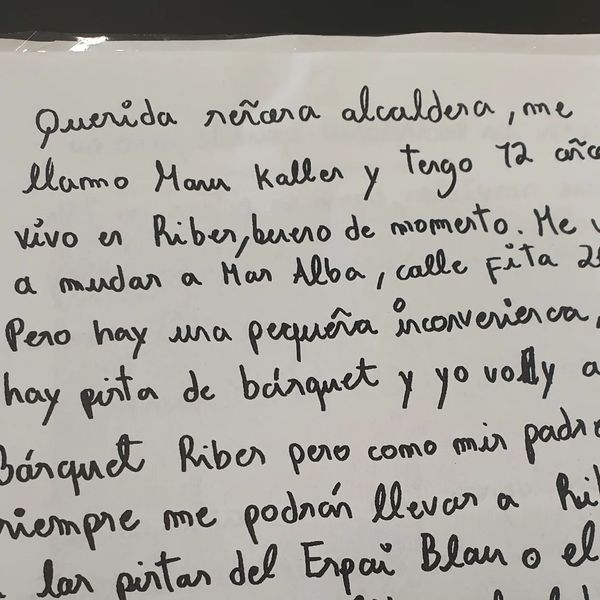 Querida señora alcaldesa, me
llamo Manu Kaller y tengo 12 año
vivo en Ribes, bueno de momento. Me v
a mudar a Mas Alba, calle Fita 2
Pero hay una pequeña inconvenienca,
hay pista de básquet y yo voy a
Básquet Ribes pero como mis padre
siempre me podrán llevar a Rib
a las pistas del Espai Blau o el